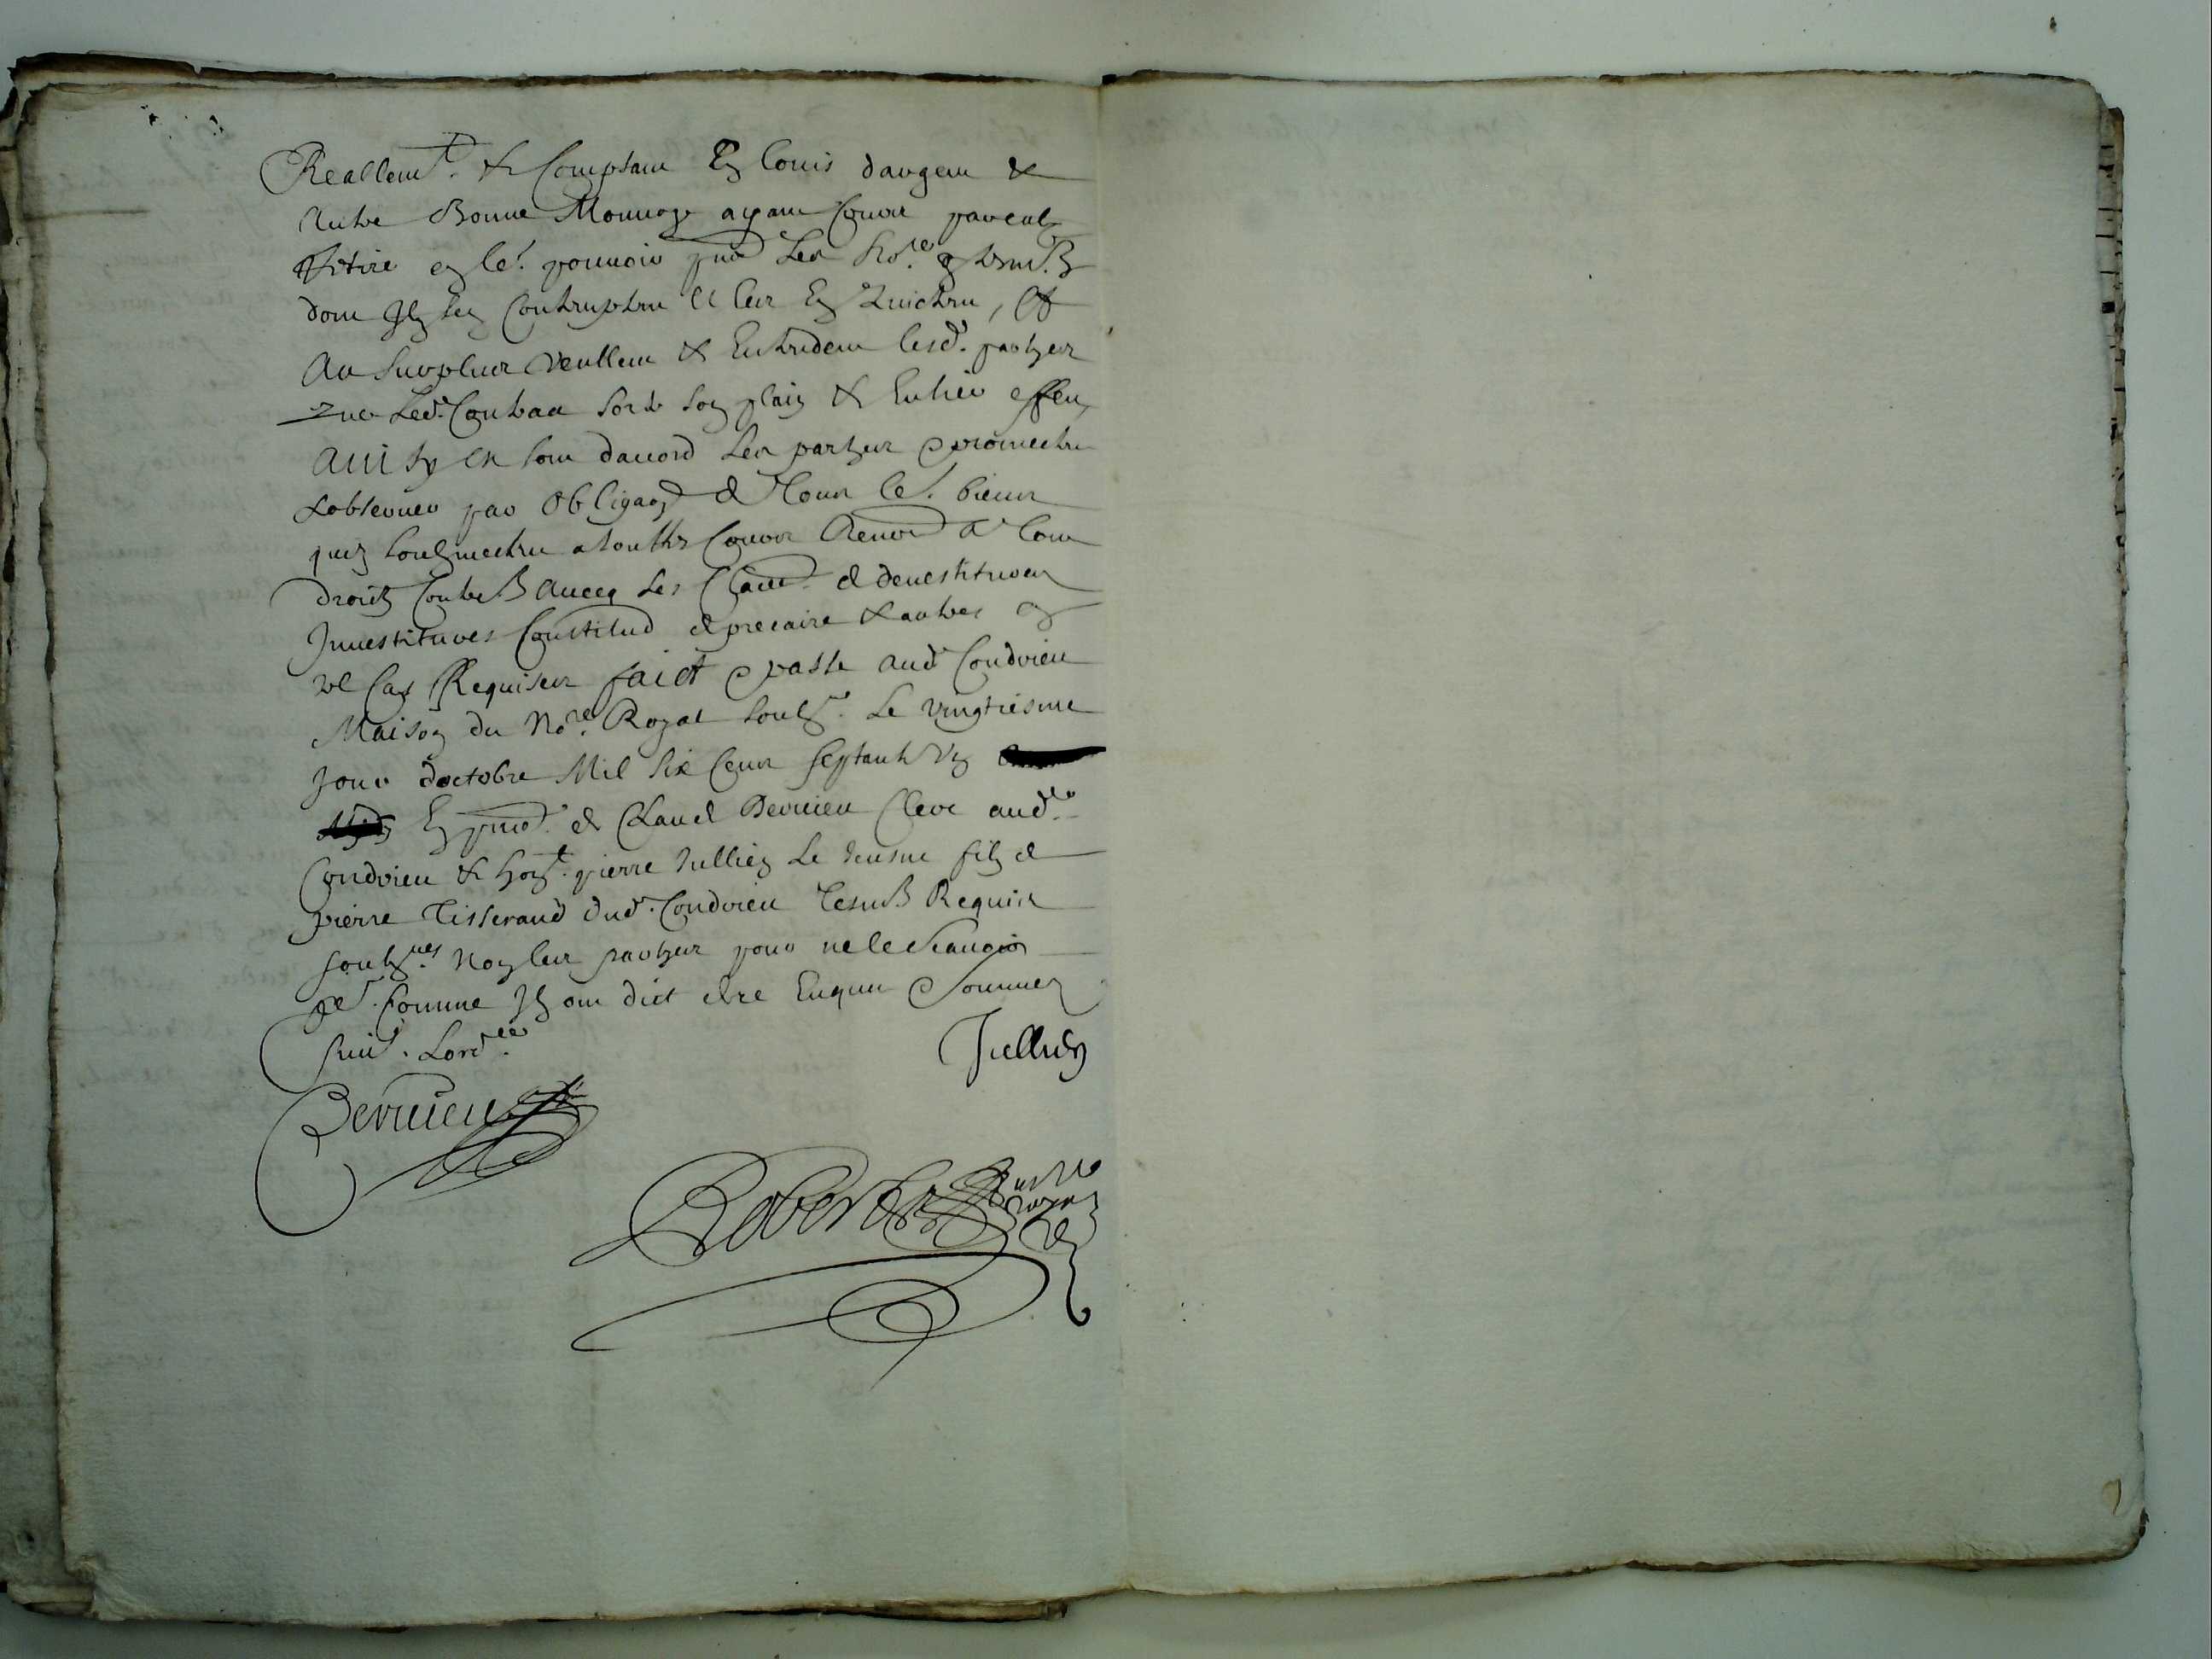 Reallem.t & Comptam En Louis dargem &
Autre Bonne Monnoye ayam Cours par eulx
Retiré en le.r pouuoir pnt Les No.re & tesm.s
dom Ilz sen Contentem et len En Quictem, Et
Au surplus Veullem & Entendem lesd. parties
que Led. Contract sorte son plain & Entier effeu,
Ainsy en som daccord Les parties promectem
Lobseruer par obligaon de Tous le.s biens
quilz soubzmectem a touttes Cours Renon.d a tous
droictz Contre.s Auecq Les Clau.s de deuestitures
Inuestitures Constitud de precaire & autres en
tel cas Requises faict & passé aud Condrieu
Maison du No.re Royal soubz.é Le vingtiesme
Jour doctobre Mil six Cens septante Un
En pnce. de Claude Bernieu Clerc aud.
Condrieu & hon.t pierre Jullien Le Jeusne filz de
pierre Tisserand dud. Condrieu Tesm.s Requis
soubz.nés Non les parties pour ne le scauoir
Comme Ilz om dict de ce Enquis & sommez
suiu.t Lord.ce
Jullien
Bernieu
Robert No.re Royal